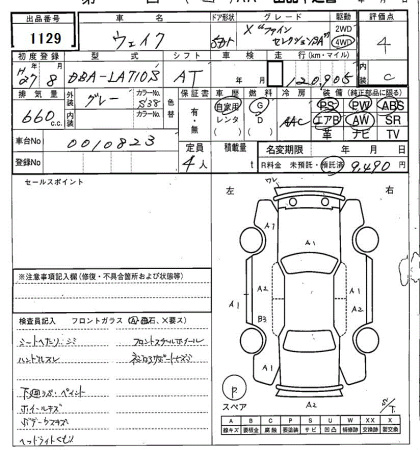 出品番号 車名 ドア形状 グレード 駆動 評価点
1129 ウェイク 5Dr X "ファイン セレクションSA" 2WD 4WD 4
初度登録 型式 シフト 車検 走行(km・マイル) 内装
H27年8月 DBA-LA710S AT 年 月 120,905 C
排気量 外装 カラーNo. 色替 内装 カラーNo. 保証書 車歴 燃料 冷房 装備(純正部品に限る)
660c.c. グレー S38 有・無 自家用 レンタ G D AAC PS PW ABS
エアB AW SR
革 ナビ TV
車台No 0010823
定員 積載量 名変期限 年 月 日
登録No 4人 t R料金 未預託・預託済 9,490円
セールスポイント
左 右
ワレ
A1
A1
A1
A1
A2
A2
B3
A1
A1
A2
※注意事項記入欄(修復・不具合箇所および状態等)
検査員記入 フロントガラス(A・飛石、×要ス)
シートヘタリ・シミ フロントスチールホイール
ハンドルスレ
下回りサビ・ペイント
ホイールキズ
ヘッドライトくもり
P
スペア
S/T
A B C P S U W X XX
線キズ 要板金 腐蝕 要塗装 サビ 凹凸 補修跡 交換跡 要交換